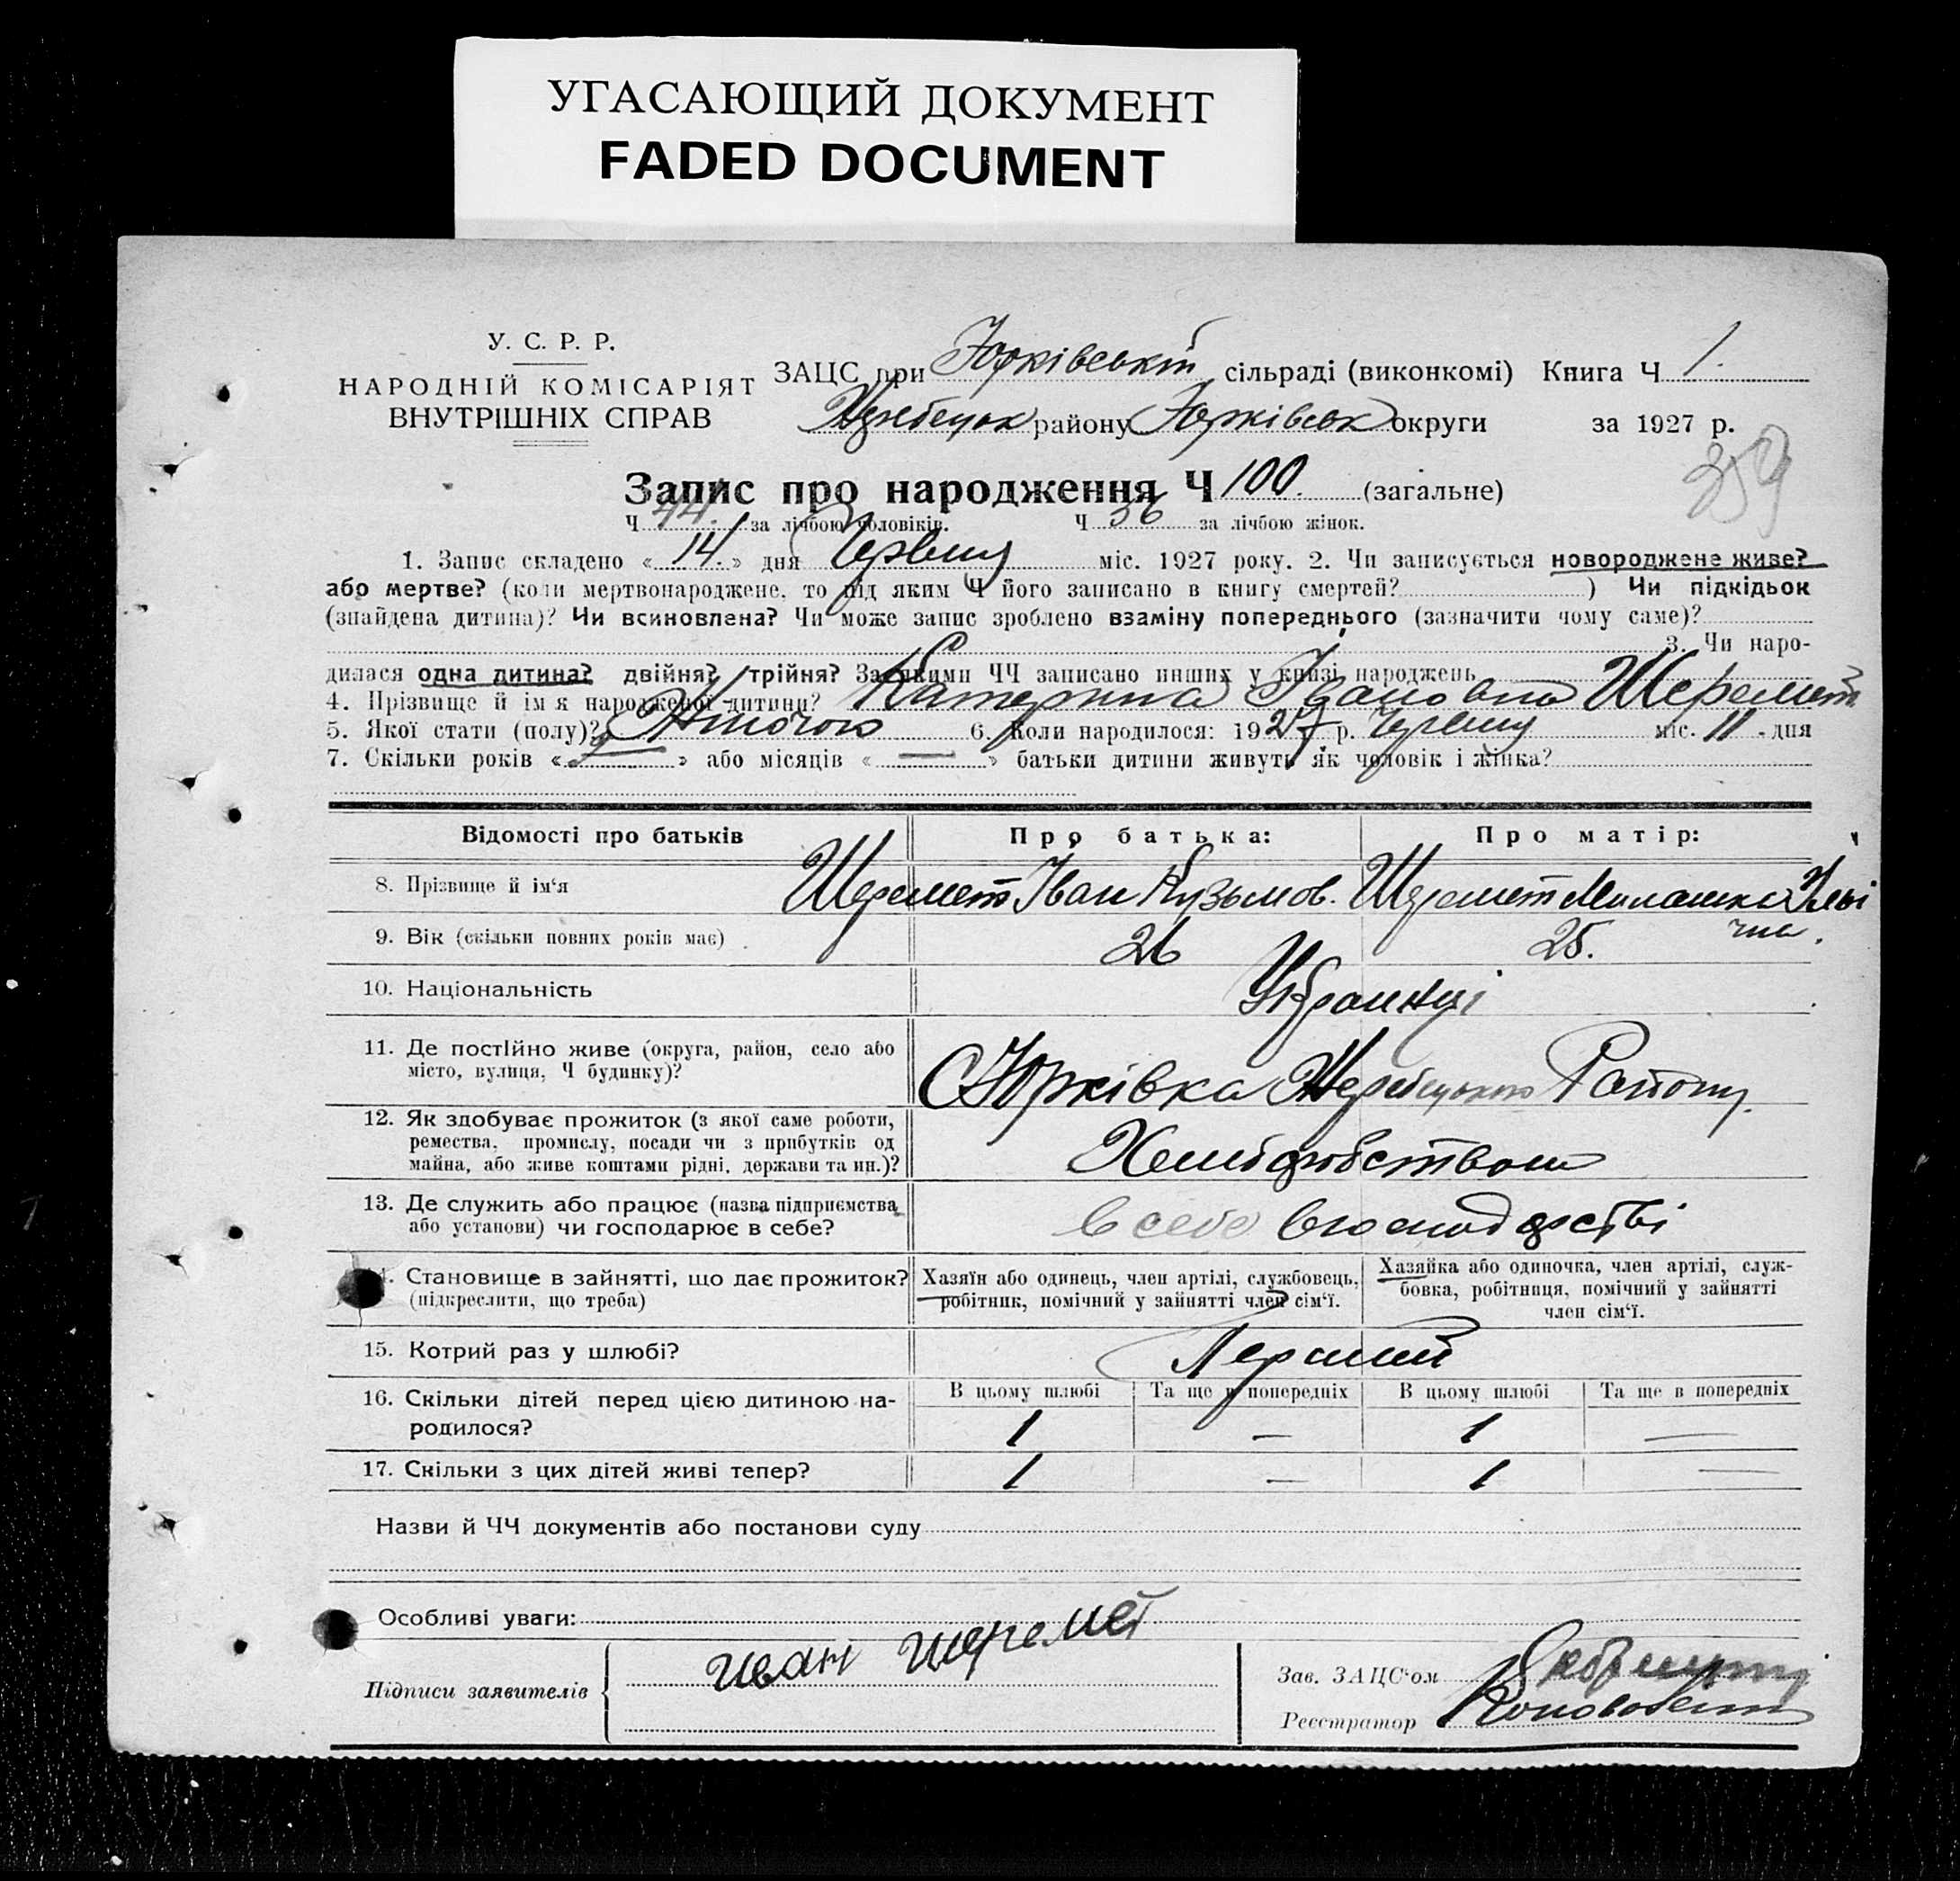 УГАСАЮЩИЙ ДОКУМЕНТ
FADED DOCUMENT
У. С. Р. Р.
НАРОДНІЙ КОМІСАРІЯТ
ВНУТРІШНІХ СПРАВ
ЗАЦС при Юрківській сільраді (виконкомі) Книга Ч 1.
району Юрківськ округи за 1927 р.
359
Запис про народження Ч 100. (загальне)
Ч 44. за лічбою чоловіків. Ч 56 за лічбою жінок.
1. Запис складено «14.» дня Червня міс. 1927 року. 2. Чи записується новороджене живе?
або мертве? (коли мертвонароджене, то під яким Ч його записано в книгу смертей? ) Чи підкідьок
(знайдена дитина)? Чи всиновлена? Чи може запис зроблено взаміну попереднього (зазначити чому саме)?
3. Чи наро-
дилася одна дитина? двійня? трійня? За якими ЧЧ записано инших у книзі народжень
4. Прізвище й ім'я народженої дитини? Катерина Івановна Шеремет
5. Якої стати (полу)? Жіночою 6. Коли народилося: 1927 р. Червня міс. 11 дня
7. Скільки років « — » або місяців « — » батьки дитини живуть як чоловік і жінка?
Відомості про батьків Про батька: Про матір:
8. Прізвище й ім'я Шеремет Іван Кузьмов. Шеремет Миланка Ульі
9. Вік (скільки повних років має) 26 25.
10. Національність Українці
11. Де постійно живе (округа, район, село або
місто, вулиця, Ч будинку)?
С Юрківка Жеребецького Району.
12. Як здобуває прожиток (з якої саме роботи,
ремества, промислу, посади чи з прибутків од
майна, або живе коштами рідні, держави та ин.)?
Хлиборобством
13. Де служить або працює (назва підприємства
або установи) чи господарює в себе?
в себе в господарстві
14. Становище в зайнятті, що дає прожиток?
(підкреслити, що треба)
Хазяїн або одинець, член артілі, службовець,
робітник, помічний у зайнятті член сім'ї.
Хазяйка або одиночка, член артілі, служ-
бовка, робітниця, помічний у зайнятті
член сім'ї.
15. Котрий раз у шлюбі? Перший
16. Скільки дітей перед цією дитиною на-
родилося?
В цьому шлюбі Та ще в попередніх В цьому шлюбі Та ще в попередніх
1 — 1 —
17. Скільки з цих дітей живі тепер? 1 — 1 —
Назви й ЧЧ документів або постанови суду
Особливі уваги:
Підписи заявителів Иван Шеремет
Зав. ЗАЦС'ом
Реєстратор